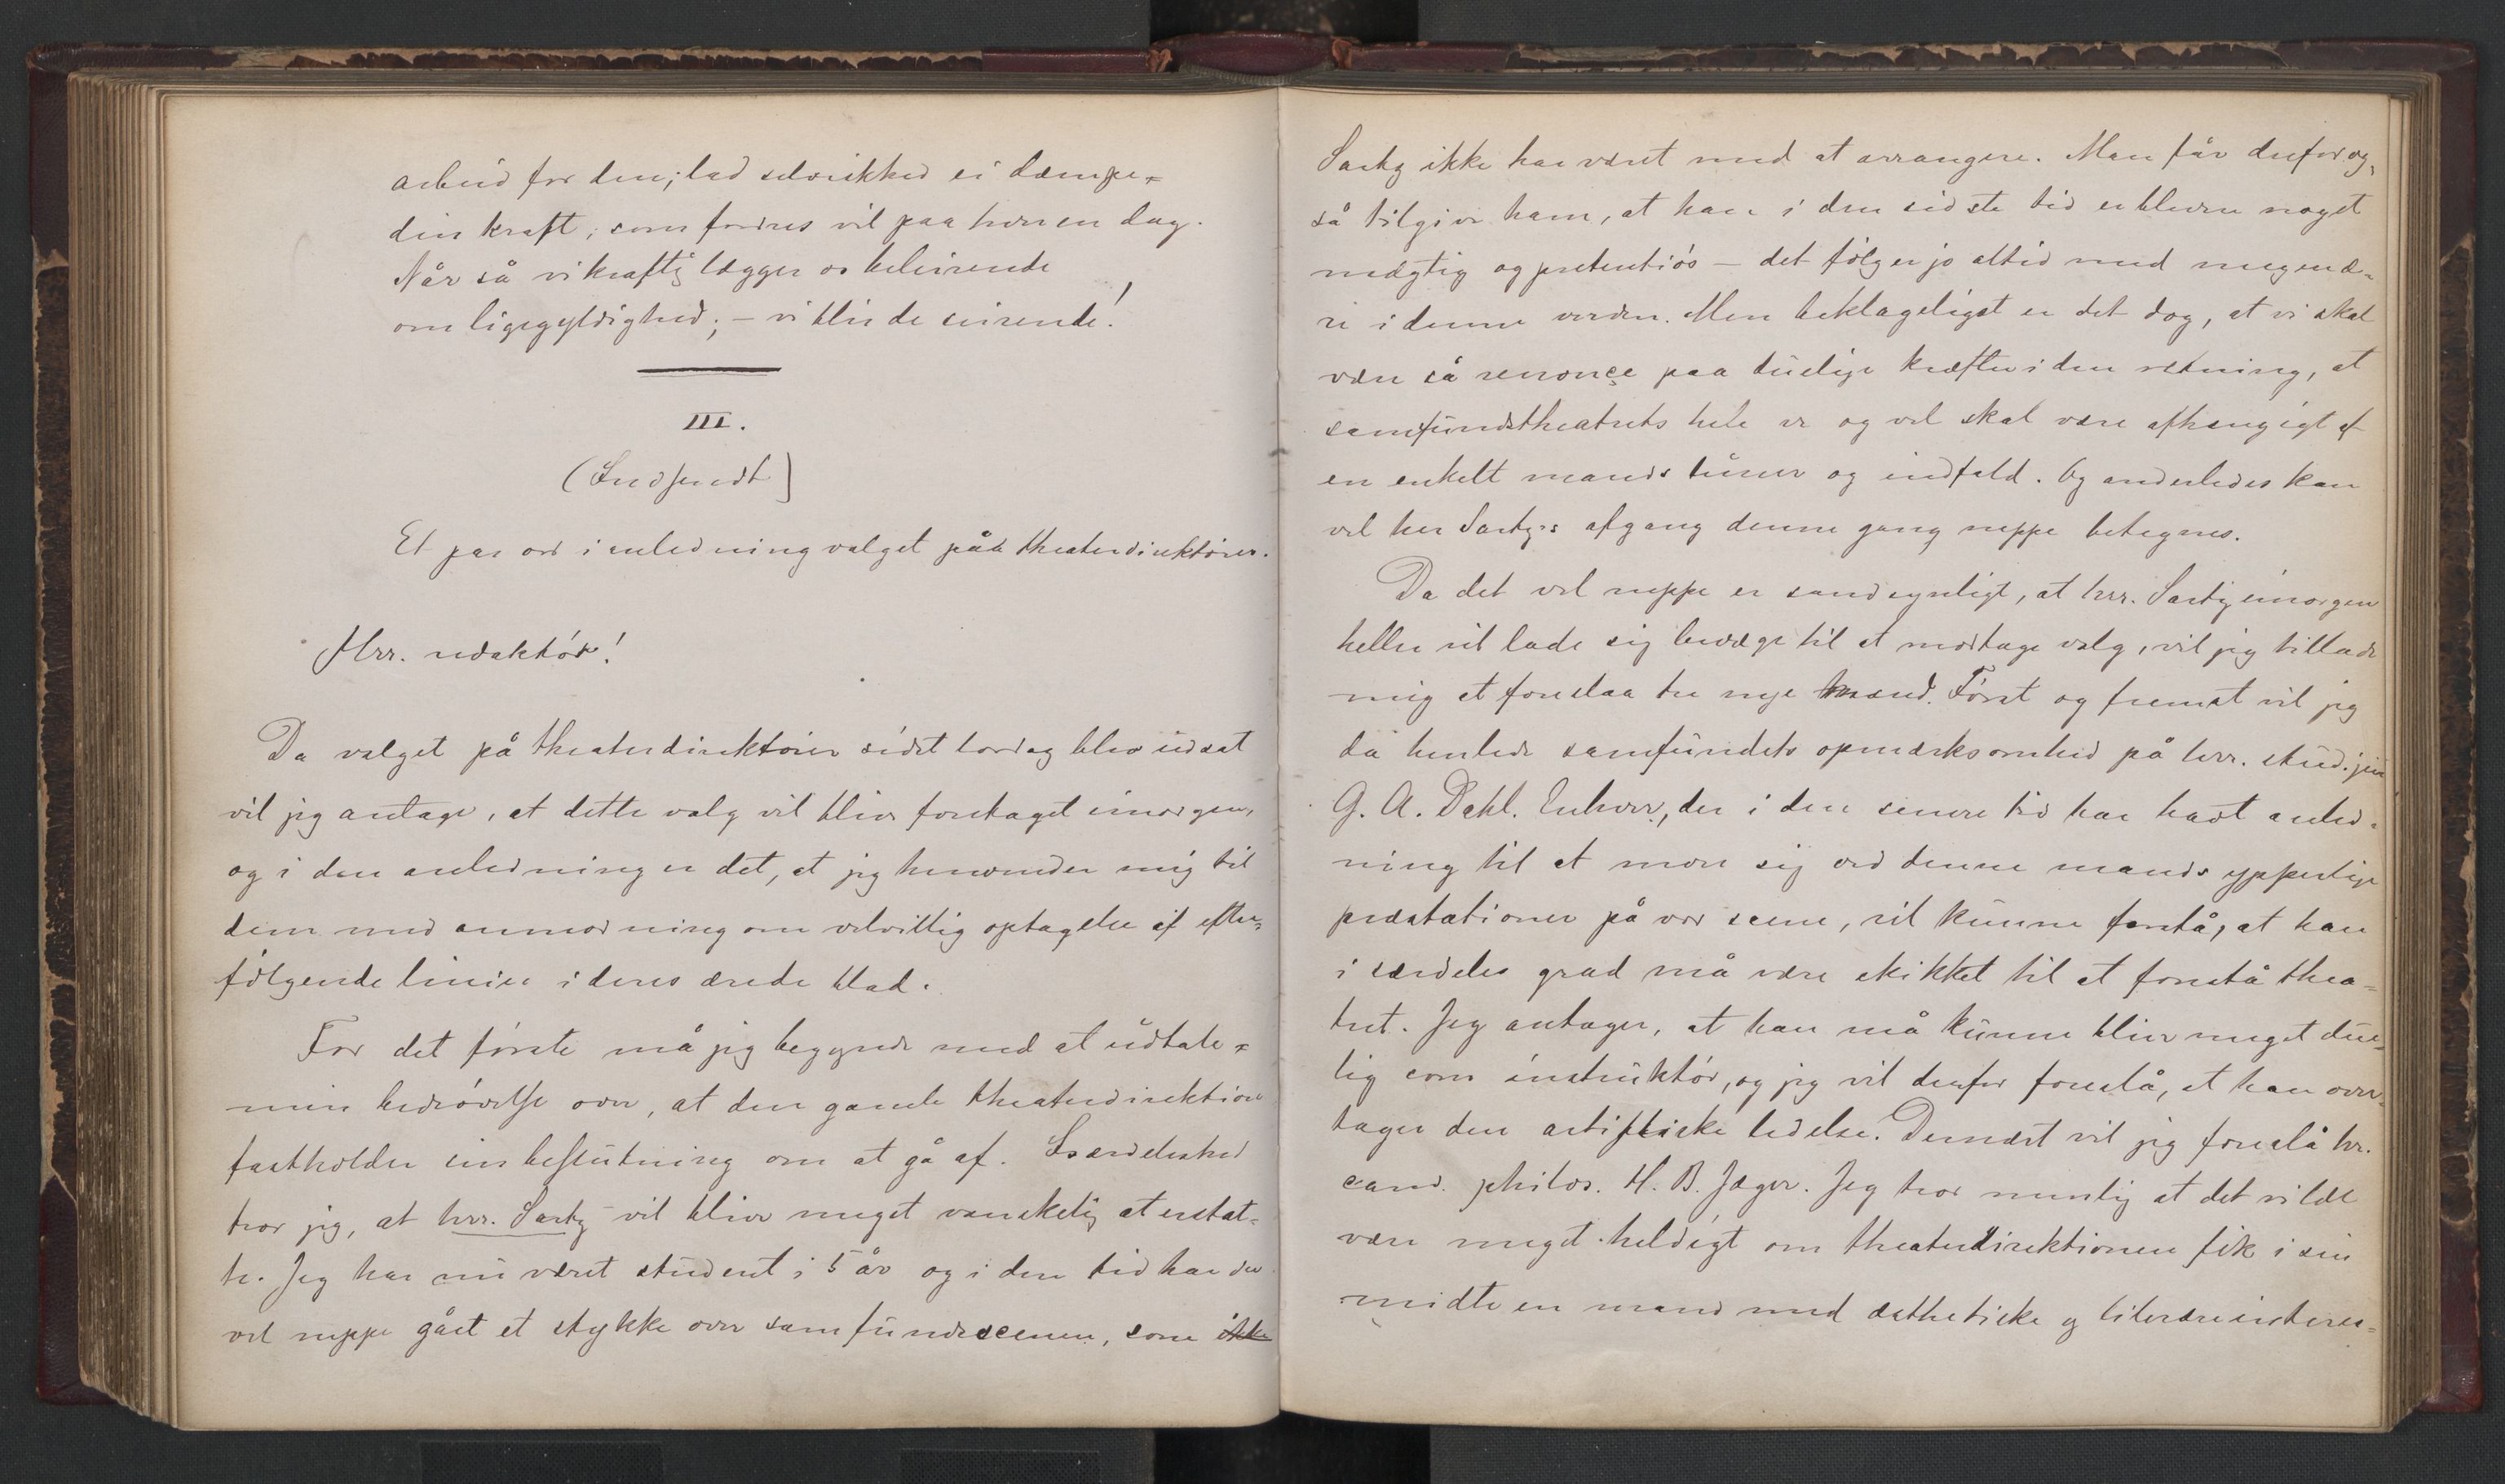 arbeid for den; lad selvviskhed ei dæmpe=
din kraft, som fordres vil paa hver en dag.
Når så vi kraftig lægger os beleirende
om ligegyldighed; – vi blir de seirende!
III.
(Indsendt)
Et par ord i anledning valget påa theaterdirektører.
Hrr. redaktör!
Da valget på theaterdirektörer sidst lørdag blev udsat
vil jeg antage, at dette valg vil blive foretaget imorgen,
og i den anledning er det, at jeg henvender mig til
dem med anmodning om velvillig optagelse af efter=
fölgende linier i deres ærede blad.
For det förste må jeg begynde med at udtale=
min bedrövelse over, at den gamle theaterdirektion
fastholder sin beslutning om at gå af. Særdeleshed
tror jeg, at hrr. Sartz vil blive meget vanskelig at erstat=
te. Jeg har nu været student i 5 år og i den tid har der
vel neppe gået et stykke over samfundsscenen, som ikke
Sartz ikke har været med at arrangere. Man får derfor og=
så tilgive ham, at han i den sidste tid er bleven noget
mægtig og pretentiös – det fölger jo altid med megen æ=
re i denne verden. Men beklageligst er det dog, at vi skal
være så renonçe paa duelige kræfter i den retning, at
samfundstheatrets hele ve og vel skal være afhængigt af
en enkelt mands luner og indfald. Og anderledes kan
vel her Sartz's afgang denne gang neppe betegnes.
Da det vel neppe er sandsynligt, at hrr. Sartz imorgen
heller vil lade sig bevæge til at modtage valg, vil jeg tillade
mig at foreslaa tre nye mænd. Först og fremst vil jeg
da henlede samfundets opmærksomhed på hrr. stud. jur
G. A. Dahl. Enhver, der i den senere tid har havt anled=
ning til at more sig ved denne mands ypperlige
præstationer på vor scene, vil kunne forstå, at han
i særdeles grad må være skikket til at forestå thea=
tret. Jeg antager, at han må kunne blive meget due=
lig som instruktör, og jeg vil derfor foreslå, at han over=
tager den artistiske ledelse. Dernæst vil jeg foreslå hr.
cand. philos. H. B. Jæger. Jeg tror nemlig at det vilde
være meget heldigt om theaterdirektionen fik i sin
midte en mand med æsthetiske og literære interes=